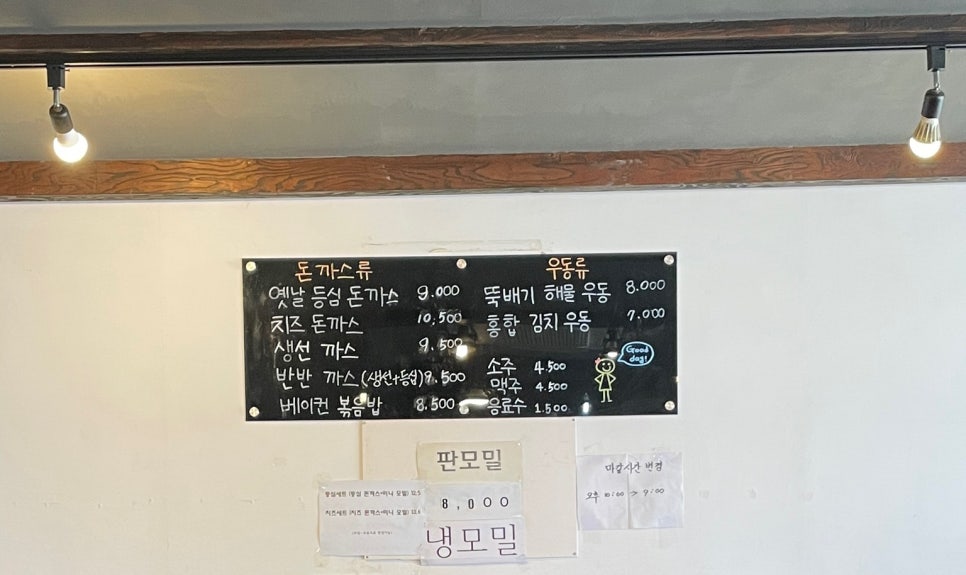 돈까스류
옛날 등심 돈까스 9.000
치즈 돈까스 10,500
생선 까스 9.500
반반 까스(생선+등심) 9.500
베이컨 볶음밥 8.500
우동류
뚝배기 해물 우동 8.000
홍합 김치 우동 7.000
Good
day!
소주 4.500
맥주 4.500
음료수 1.500
판모밀
8,000
냉모밀
등심세트 (등심 돈까스+미니 모밀) 12,5
치즈세트 (치즈 돈까스+미니 모밀)
마감시간 변경
오후 10:00 → 9:00